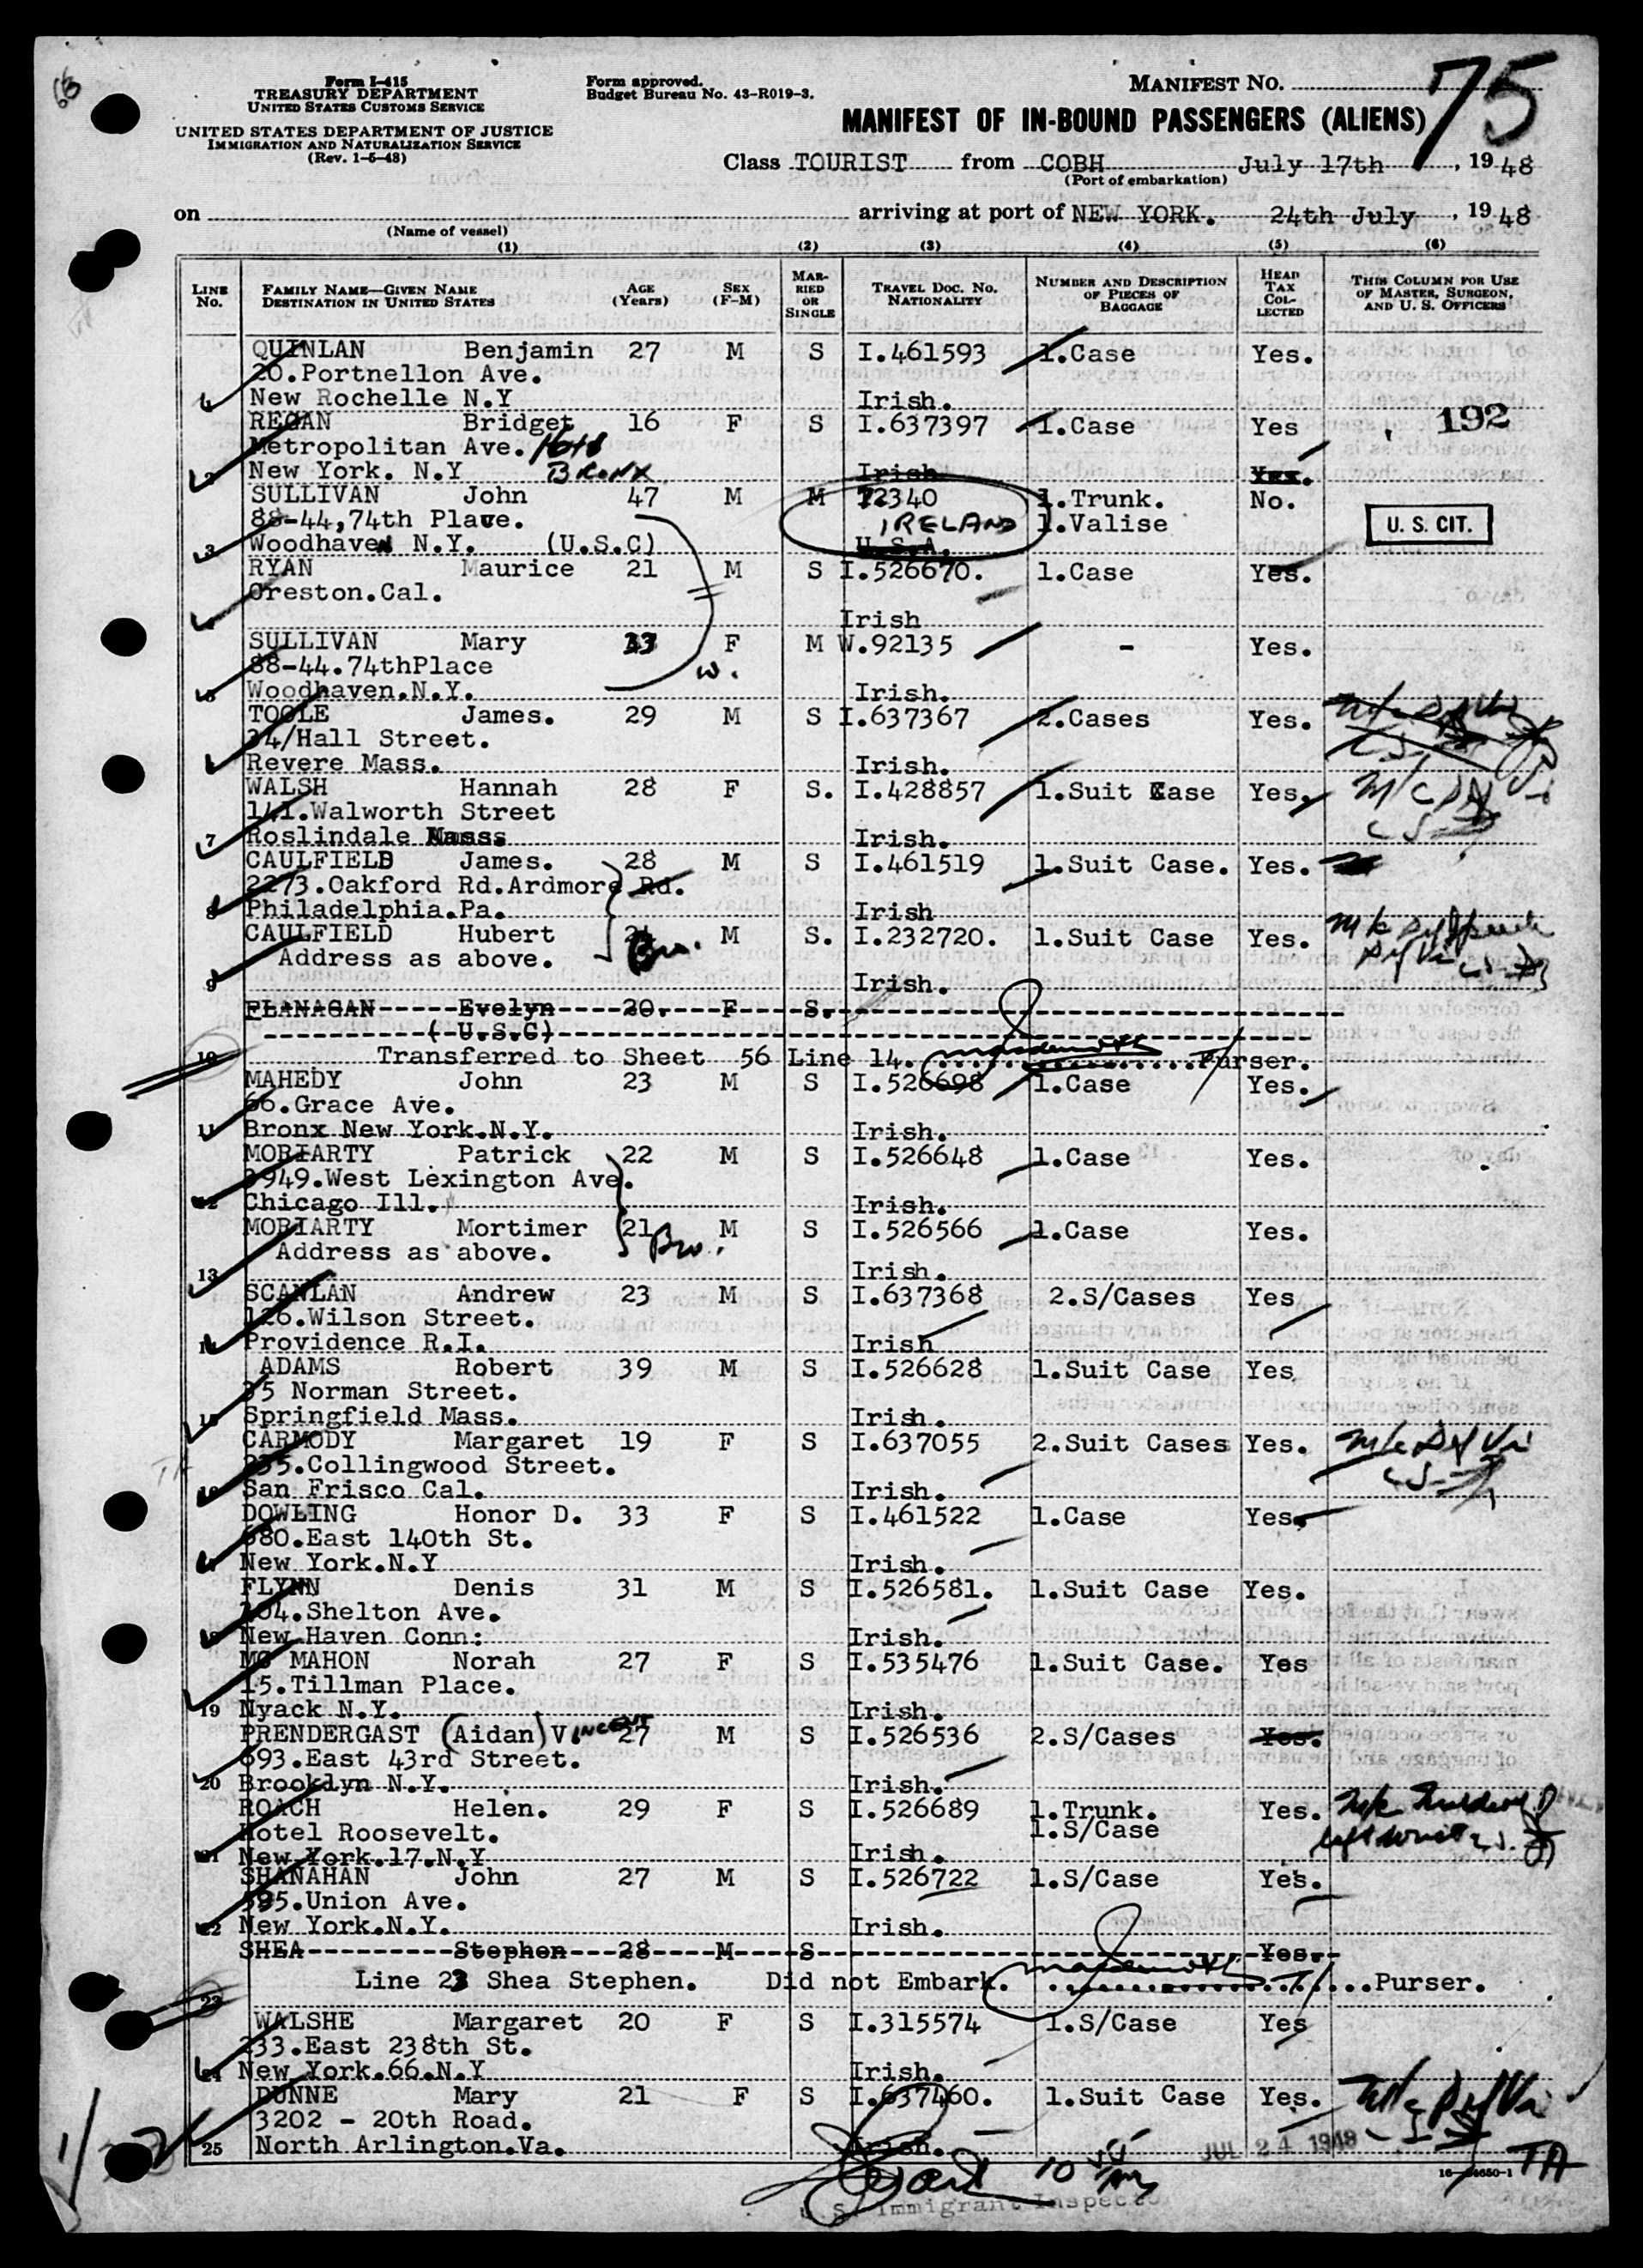 Form I-415
TREASURY DEPARTMENT
UNITED STATES CUSTOMS SERVICE
UNITED STATES DEPARTMENT OF JUSTICE
IMMIGRATION AND NATURALIZATION SERVICE
(Rev. 1-5-48)
Form approved.
Budget Bureau No. 43-R019-3.
MANIFEST NO. 75
MANIFEST OF IN-BOUND PASSENGERS (ALIENS)
Class TOURIST from COBH July 17th, 1948
(Port of embarkation)
on arriving at port of NEW YORK. 24th July, 1948
(Name of vessel)
(1) (2) (3) (4) (5) (6)
LINE No. FAMILY NAME—GIVEN NAME DESTINATION IN UNITED STATES AGE (Years) SEX (F-M) MARRIED OR SINGLE TRAVEL DOC. No. NATIONALITY NUMBER AND DESCRIPTION OF PIECES OF BAGGAGE HEAD TAX COLLECTED THIS COLUMN FOR USE OF MASTER, SURGEON, AND U. S. OFFICERS
QUINLAN Benjamin 27 M S I.461593 1.Case Yes.
20.Portnellon Ave.
New Rochelle N.Y Irish.
REGAN Bridget 16 F S I.637397 1.Case Yes 192
Metropolitan Ave.
2 New York. N.Y BRONX Irish Yes.
SULLIVAN John 47 M M 72340 1.Trunk. No.
88-44,74th Place. IRELAND 1.Valise U. S. CIT.
3 Woodhaven N.Y. (U.S.C) U.S.A.
RYAN Maurice 21 M S I.526670. 1.Case Yes.
Creston.Cal.
Irish
SULLIVAN Mary 33 F M W.92135 - Yes.
88-44.74thPlace W.
Woodhaven.N.Y. Irish.
TOOLE James. 29 M S I.637367 2.Cases Yes.
34/Hall Street.
Revere Mass. Irish.
WALSH Hannah 28 F S. I.428857 1.Suit Case Yes.
141.Walworth Street
7 Roslindale Mass Irish.
CAULFIELD James. 28 M S I.461519 1.Suit Case. Yes.
2273.Oakford Rd.Ardmore Rd.
8 Philadelphia.Pa. Irish
CAULFIELD Hubert M S. I.232720. 1.Suit Case Yes.
Address as above. Bro.
9 Irish.
FLANAGAN Evelyn 20. F S.
(U.S.C)
10 Transferred to Sheet 56 Line 14. Purser.
MAHEDY John 23 M S I.526698 1.Case Yes.
66.Grace Ave.
11 Bronx New York.N.Y. Irish.
MORIARTY Patrick 22 M S I.526648 1.Case Yes.
3949.West Lexington Ave.
12 Chicago Ill. Irish.
MORIARTY Mortimer 21 M S I.526566 1.Case Yes.
Address as above. Bro.
13 Irish.
SCANLAN Andrew 23 M S I.637368 2.S/Cases Yes
126.Wilson Street.
14 Providence R.I. Irish
ADAMS Robert 39 M S I.526628 1.Suit Case Yes
35 Norman Street.
15 Springfield Mass. Irish.
CARMODY Margaret 19 F S I.637055 2.Suit Cases Yes.
235.Collingwood Street.
16 San Frisco Cal. Irish.
DOWLING Honor D. 33 F S I.461522 1.Case Yes.
680.East 140th St.
New York.N.Y Irish.
FLYNN Denis 31 M S I.526581. 1.Suit Case Yes.
204.Shelton Ave.
18 New Haven Conn: Irish.
MC MAHON Norah 27 F S I.535476 1.Suit Case. Yes
15.Tillman Place.
19 Nyack N.Y. Irish.
PRENDERGAST (Aidan) VINCENT 27 M S I.526536 2.S/Cases Yes.
693.East 43rd Street.
20 Brooklyn N.Y. Irish.
ROACH Helen. 29 F S I.526689 1.Trunk. Yes.
Hotel Roosevelt. 1.S/Case
21 New York.17.N.Y Irish.
SHANAHAN John 27 M S I.526722 1.S/Case Yes.
595.Union Ave.
22 New York.N.Y. Irish.
SHEA Stephen 28 M S Yes.
Line 23 Shea Stephen. Did not Embark. Purser.
23
WALSHE Margaret 20 F S I.315574 1.S/Case Yes
233.East 238th St.
24 New York.66.N.Y Irish.
DUNNE Mary 21 F S I.637460. 1.Suit Case Yes.
3202 - 20th Road.
25 North Arlington.Va. Irish. JUL 24 1948 TA
U. S. Immigrant Inspector